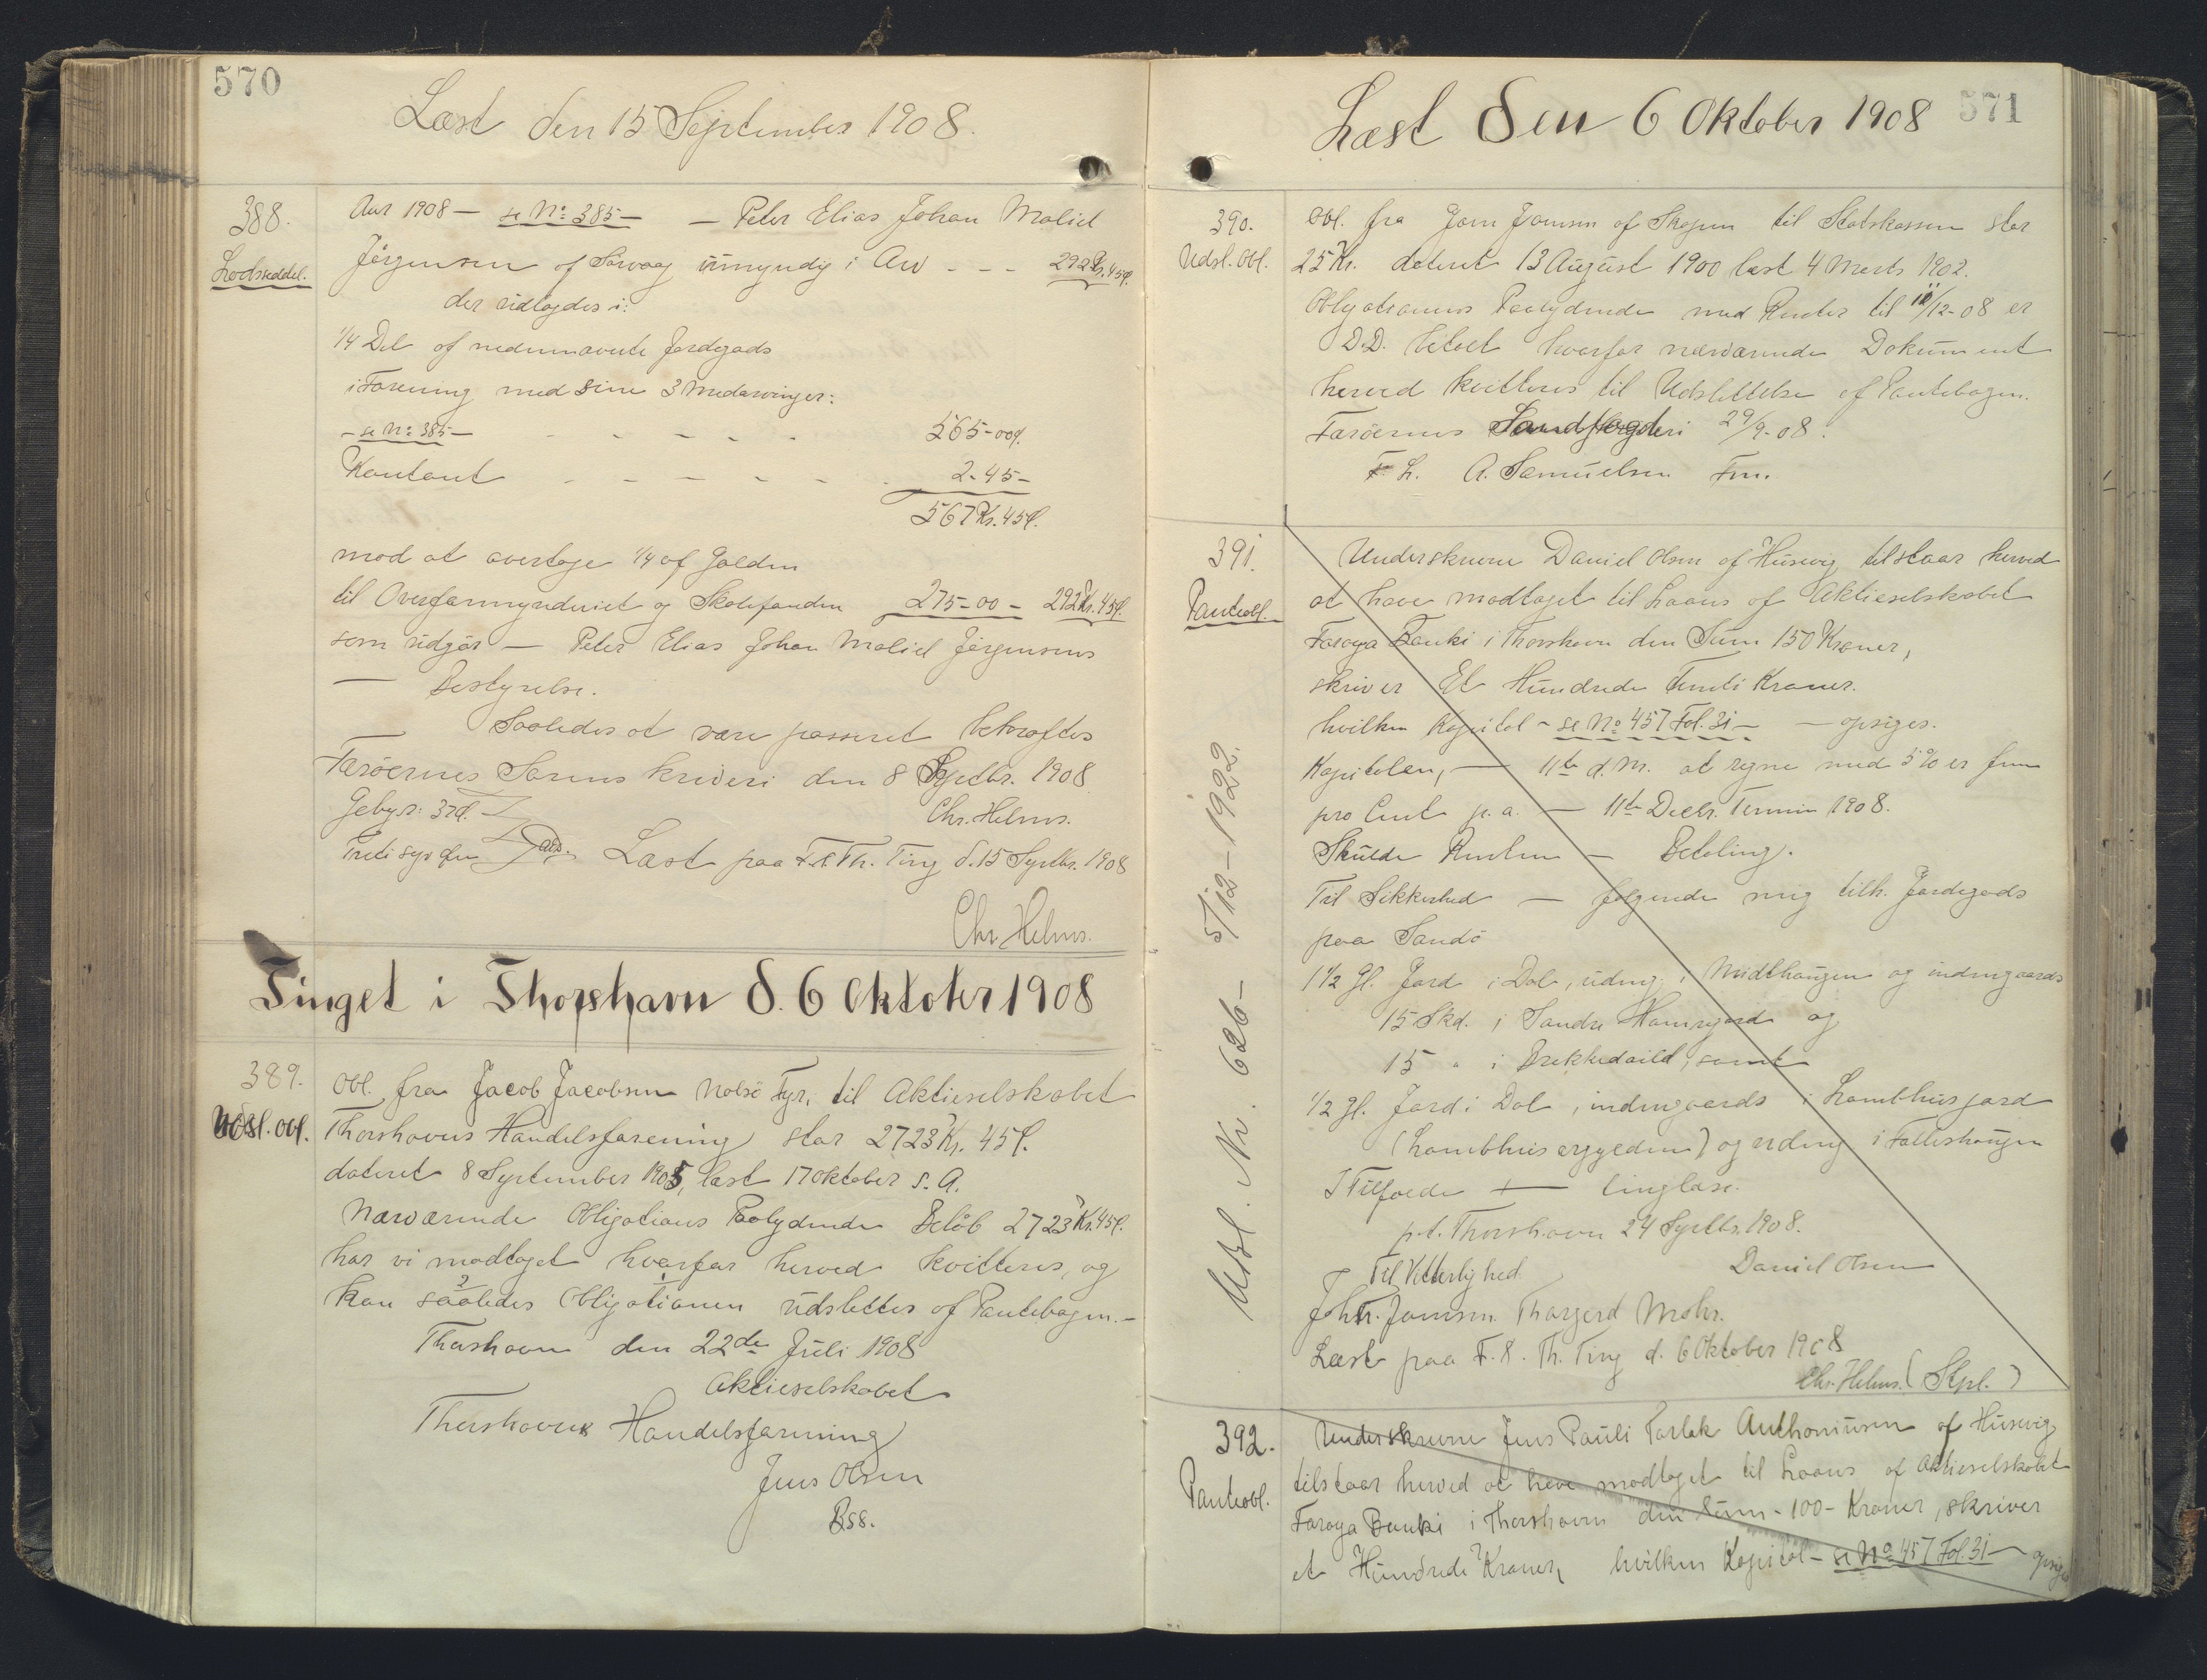 570
Læst den 15 September 1908.
388.
Lodseddel.
Aar 1908 — se No: 385 — — Peter Elias Johan Maliel
Jörgensen af Sörvaag umyndig i Arv - - - 292 Kr. 45 Ø.
der udlagdes i:
1/4 Del af nedennævnte Jordegods
i Forening med sine 3 Medarvinger:
- se No: 385 - - - - - - 565-00 Ø.
Kontant - - - - - - 2-45-
567 Kr. 45 Ø.
mod at overtage 1/4 af Gælden
til Overformynderiet og Skolefonden 275-00 - 292 Kr. 45 Ø.
som udgör — Peter Elias Johan Maliel Jörgensens
— Bestyrelse.
Saaledes at være passeret bekræftes
Færöernes Sorenskriveri den 8 Septbr. 1908
Gebyr: 37 Ø.
Chr. Helms.
Treti syv Øre
Læst paa F. S. Th. Ting d. 15 Septbr. 1908
Chr. Helms.
Tinget i Thorshavn d. 6 Oktober 1908
389.
Udsl. Obl.
Obl. fra Jacob Jacobsen Nolsö Fyr, til Aktieselskabet
Thorshavns Handelsforening stor 2723 Kr. 45 Ø.
dateret 8 September 1905, læst 17 Oktober s. A.
Nærværende Obligations Paalydende Belöb 2723 Kr. 45 Ø.
har vi modtaget hvorfor herved kvitteres, og
kan saaledes Obligationen udslettes af Pantebogen.-
Thorshavn den 22de Juli 1908
Aktieselskabet
Thorshavns Handelsforening
Jens Olsen
Bss.
Læst den 6 Oktober 1908
571
390.
Udsl. Obl.
Obl. fra Joen Joensen af Skopen til Statskassen stor
25 Kr. dateret 13 August 1900 læst 4 Marts 1902.
Obligationens Paalydende med Renter til 11/12-08 er
D.D. betalt hvorfor nærværende Dokument
herved kvitteres til Udslettelse af Pantebogen.
Færöernes Landfogderi 29/9-08.
F. L. A. Samuelsen Fm.
391.
Panteobl.
Utsl. Nr. 626 - 5/12-1922.
Underskrevne Daniel Olsen af Husevig tilstaar herved
at have modtaget til Laans af Aktieselskabet
Föroya Banki i Thorshavn den Sum 150 Kroner,
skriver Et Hundrede Femti Kroner.
hvilken Kapital - se No 457 Fol. 31 - — opsiges.
Kapitalen, — 11te d. M. at regne med 5% er fem
pro Cent p. a. — 11te Decbr. Termin 1908.
Skulde Renten — Betaling.
Til Sikkerhed — fölgende mig tilh. Jordegods
paa Sandö
1 1/2 Gl. Jord i Dal, udeng. i Midthaugen og indengaards
15 Skd. i Sandre Hamregard og
15 " i Brekkedaild, samt
1/2 gl. Jord i Dal, indengaards i Lambhusgard
(Lambhusergyeden) og udeng i Falleshaugen
I Tilfælde + — tinglæse.
p.t. Thorshavn 24 Septbr. 1908.
Til Vitterlighed
Daniel Olsen
Joh. Joensen. Thorgerd Mohr.
Læst paa F. S. Th. Ting d. 6 Oktober 1908
Chr. Helms. (Stpl.)
392.
Panteobl.
Underskrevne Jens Pauli Torlak Anthoniusen af Husevig
tilstaar herved at have modtaget til Laans af Aktieselskabet
Föroya Banki i Thorshavn den Sum - 100 - Kroner, skriver
et Hundrede Kroner, hvilken Kapital - se No 457 Fol. 31 - opsiges